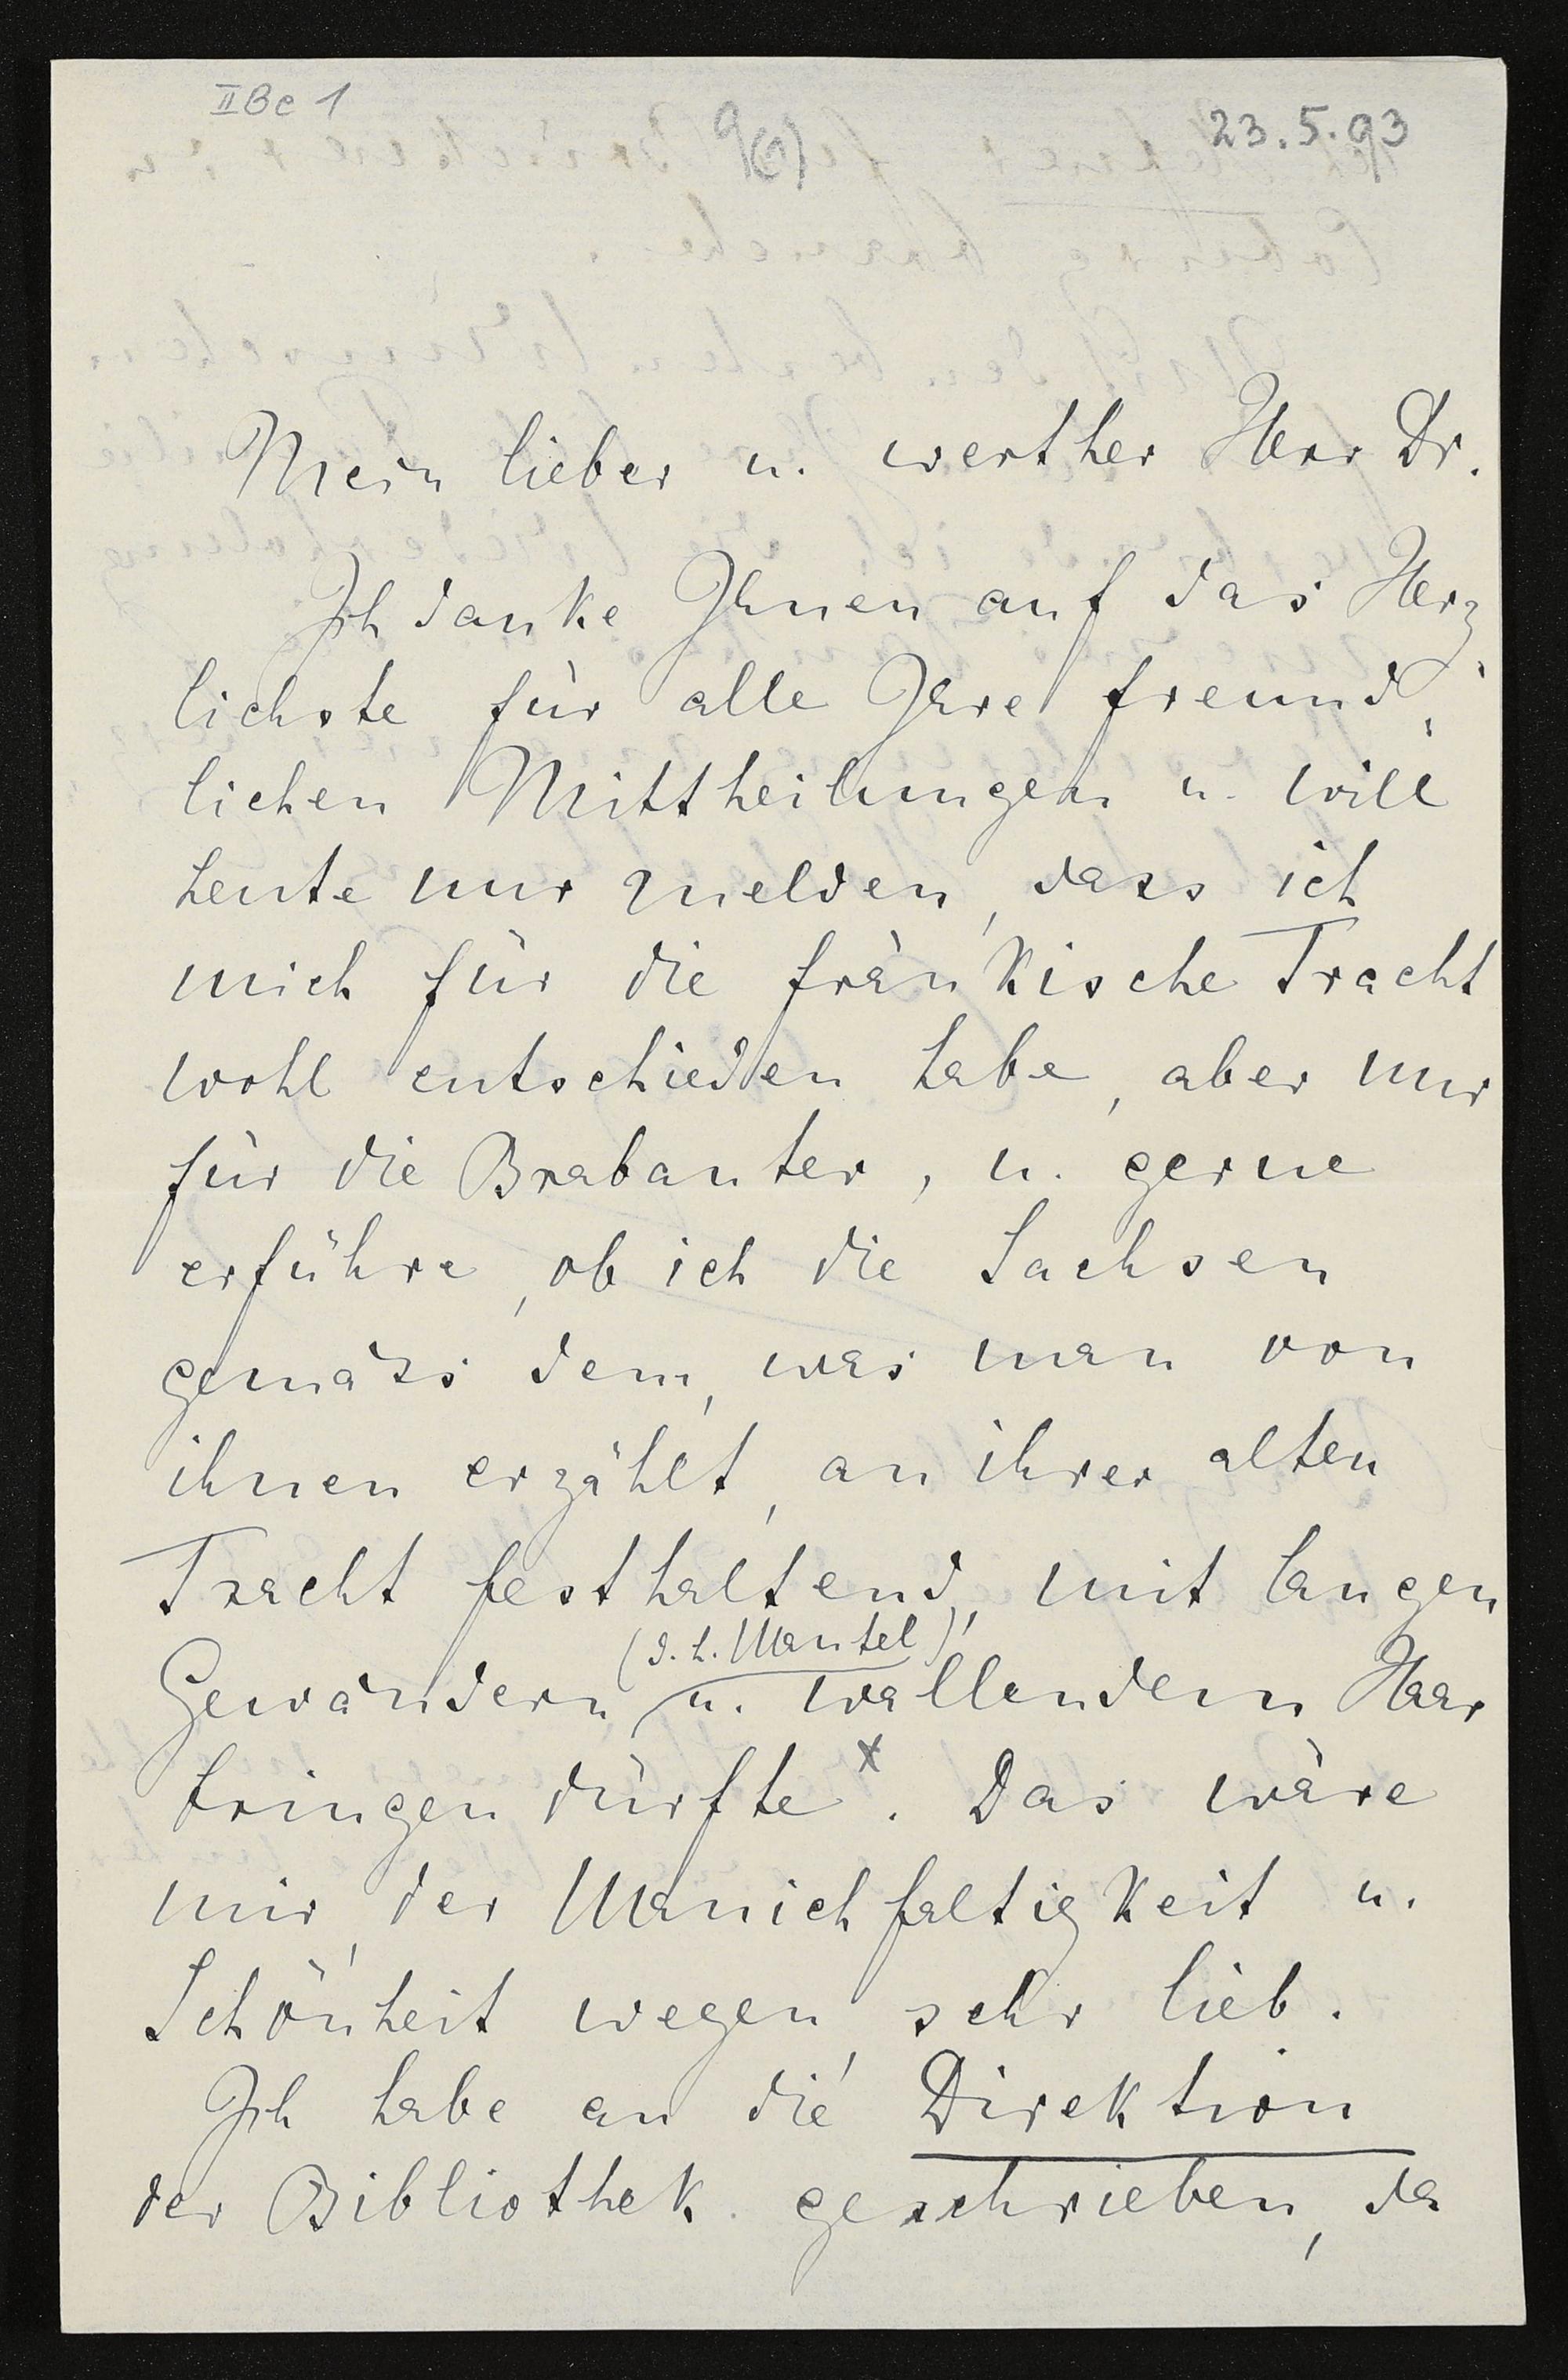 IIBe 1
9(6)
23.5.93
Mein lieber u. werther Herr Dr.
Ich danke Ihnen auf das Herz
lichste für alle Ihre freund,
lichen Mittheilungen u. will
heute nur melden, dass ich
mich für die fränkische Tracht
wohl entschieden habe, aber nur
für die Brabanter, u. gerne
erführe, ob ich die Sachsen
gemäss dem, was man von
ihnen erzählt, an ihrer alten
Tracht festhaltend, mit langen
(d.h. Mantel)
Gewändern u. wallendem Haar
bringen dürfte x. Das wäre
mir, der Manichfaltigkeit u.
Schönheit wegen, sehr lieb.
Ich habe an die Direktion
der Bibliothek geschrieben, da